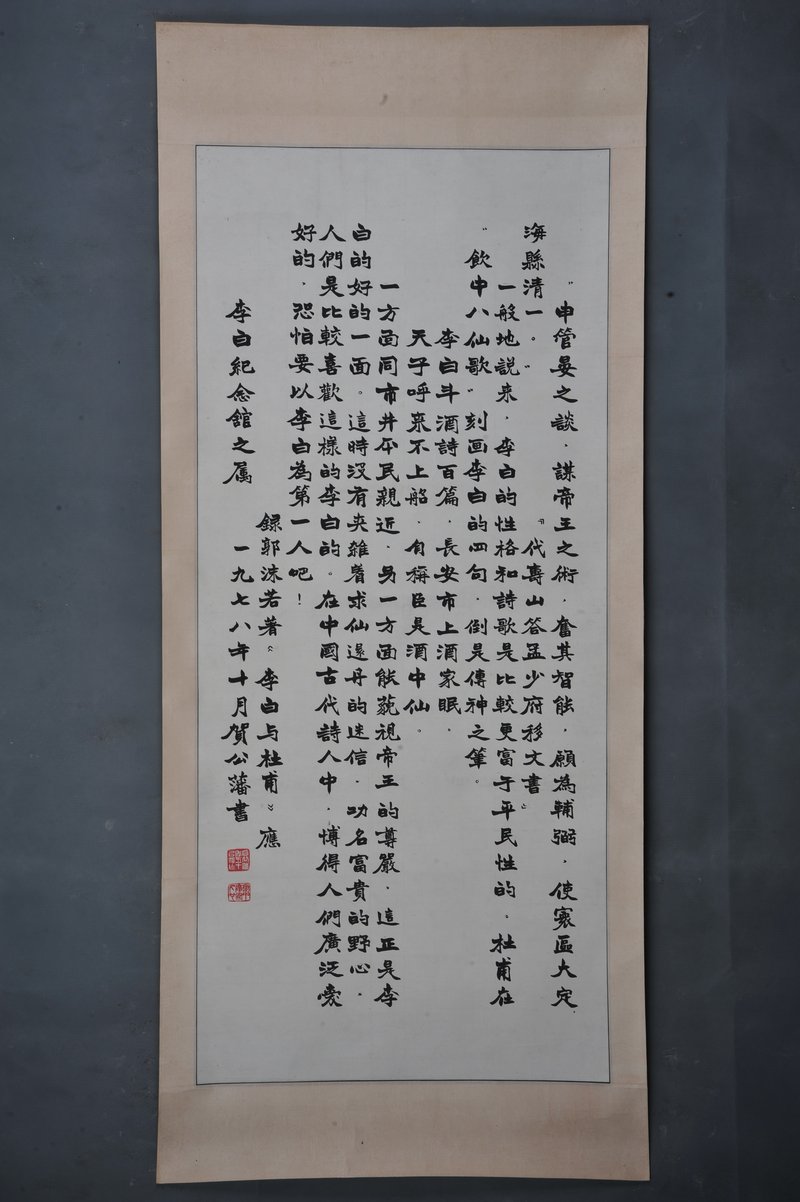 “申管晏之談，謀帝王之術，奮其智能，願為輔弼，使寰區大定
海縣清一。”
《代壽山答孟少府移文書》
一般地説來，李白的性格和詩歌是比較更富于平民性的。杜甫在
“飲中八仙歌”刻画李白的四句，倒是傳神之筆。
李白斗酒詩百篇，長安市上酒家眠，
天子呼來不上船，自稱臣是酒中仙。
一方面同市井平民親近，另一方面能藐視帝王的尊嚴，這正是李
白的好的一面。這時没有夹雜着求仙還丹的迷信，功名富貴的野心，
人們是比較喜歡這樣的李白的。在中國古代詩人中，博得人們廣泛愛
好的，恐怕要以李白為第一人吧！
録郭沫若著《李白与杜甫》應
李白紀念舘之属
一九七八年十月賀公藩書